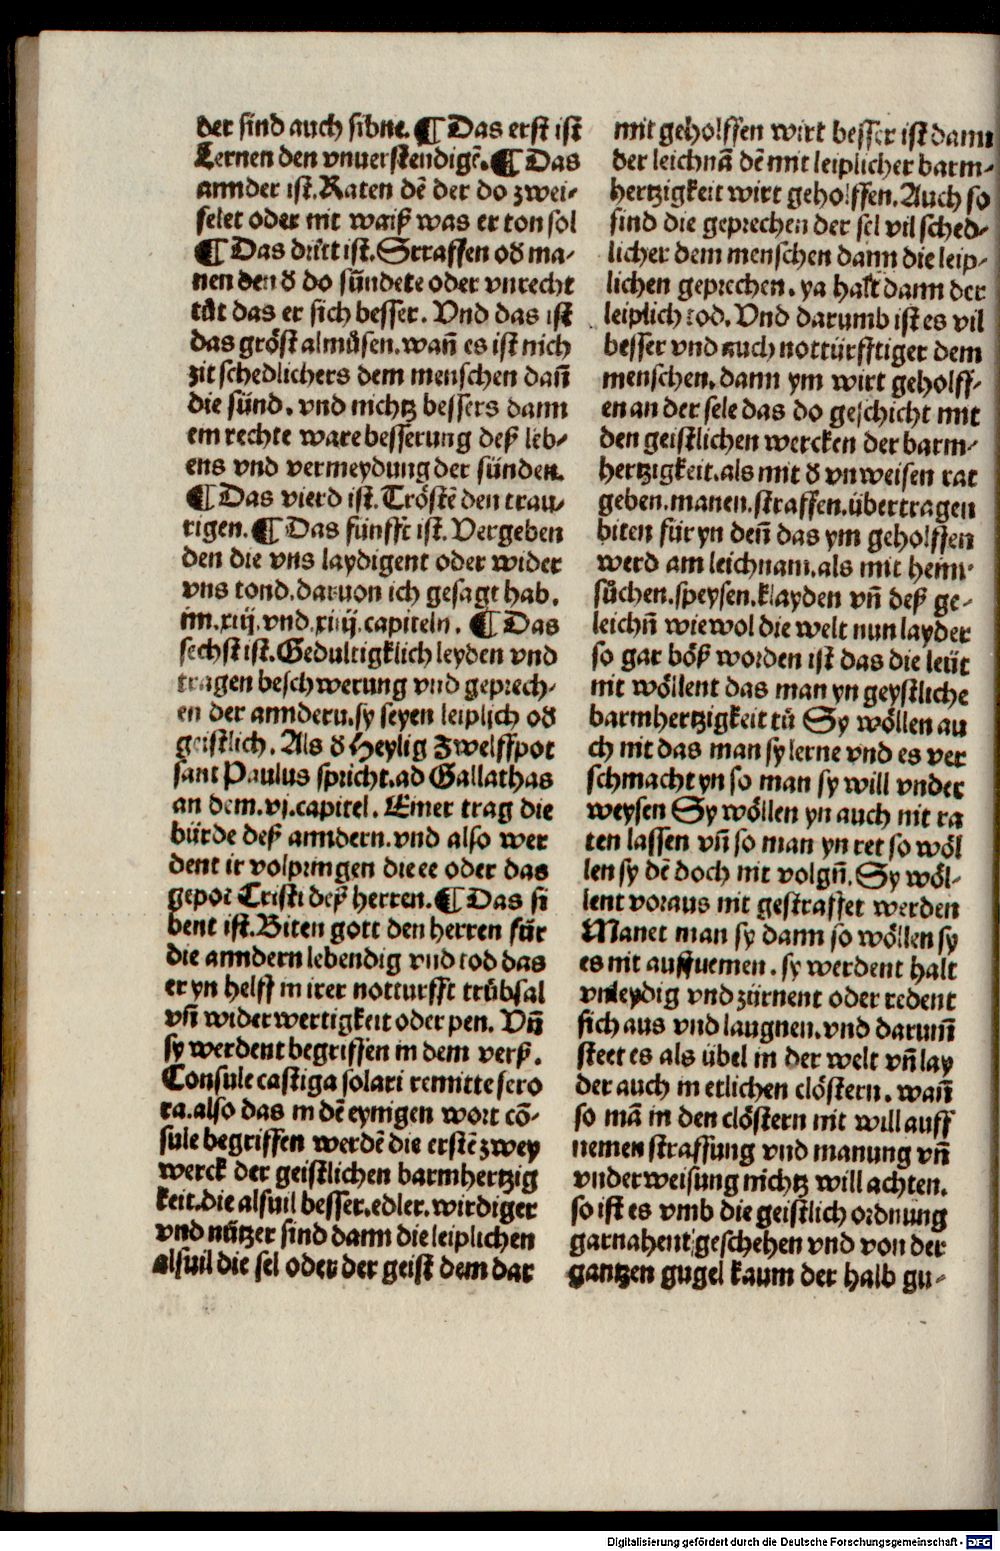 der sind auch sibne. ¶ Das erst ist
Lernen den vnuerstendigē. ¶ Das
annder ist. Raten dē der do zwei-
felet oder nit waiß was er ton sol
¶ Das dritt ist. Straffen od̄ ma-
nen den d̄ do sündete oder vnrecht
tůt das er sich besser. Vnd das ist
das gröst almůsen. wañ es ist nich
zit schedlichers dem menschen dañ
die sünd. vnd nichtz bessers dann
ein rechte ware besserung deß leb-
ens vnd vermeydung der sünden.
¶ Das vierd ist. Tröstē den trau-
rigen. ¶ Das fünfft ist. Vergeben
den die vns laydigent oder wider
vns tond. daruon ich gesagt hab.
im. xiij. vnd. xiiij. capiteln. ¶ Das
sechst ist. Gedultigklich leyden vnd
tragen beschwerung vnd geprech-
en der anndern. sy seyen leiplich od̄
geistlich. Als d̄ Heylig Zwelffpot
sant Paulus spricht. ad Gallathas
an dem. vj. capitel. Einer trag die
bürde deß anndern. vnd also wer
dent ir volpringen die ee oder das
gepot Cristi deß herren. ¶ Das si
bent ist. Biten gott den herren für
die anndern lebendig vnd tod das
er yn helff in irer notturfft trůbsal
vñ widerwertigkeit oder pen. Vñ
sy werdent begriffen in dem verß.
Consule castiga solari remitte fero
ra. also das in dē eynigen wort cō-
sule begriffen werdē die erstē zwey
werck der geistlichen barmhertzig
keit. die alsuil besser. edler. wirdiger
vnd nützer sind dann die leiplichen
alsuil die sel oder der geist dem dar
mit geholffen wirt besser ist dann
der leichnā dē mit leiplicher barm-
hertzigkeit wirt geholffen. Auch so
sind die geprechen der sel vil sched-
licher dem menschen dann die leip-
lichen geprechen. ya halt dann der
leiplich tod. Vnd darumb ist es vil
besser vnd auch nottürfftiger dem
menschen. dann ym wirt geholff-
en an der sele das do geschicht mit
den geistlichen wercken der barm-
hertzigkeit. als mit d̄ vnweisen rat
geben. manen. straffen. übertragen
biten für yn deñ das ym geholffen
werd am leichnam. als mit heim-
sůchen. speysen. klayden vñ deß ge-
leichñ wiewol die welt nun layder
so gar böß worden ist das die leüt
nit wöllent das man yn geystliche
barmhertzigkeit tů Sy wöllen au
ch nit das man sy lerne vnd es ver
schmacht yn so man sy will vnder
weysen Sy wöllen yn auch nit ra
ten lassen vñ so man yn ret so wöl
len sy dē doch nit volgñ. Sy wöl-
lent voraus nit gestraffet werden
Manet man sy dann so wöllen sy
es nit auffnemen. sy werdent halt
vnleydig vnd zürnent oder redent
sich aus vnd laugnen. vnd darum̄
steet es als übel in der welt vñ lay
der auch in etlichen clöstern. wañ
so mā in den clöstern nit will auff
nemen straffung vnd manung vñ
vnderweisung nichtz will achten.
so ist es vmb die geistlich ordnung
garnahent geschehen vnd von der
gantzen gugel kaum der halb gu-
Digitalisierung gefördert durch die Deutsche Forschungsgemeinschaft - DFG